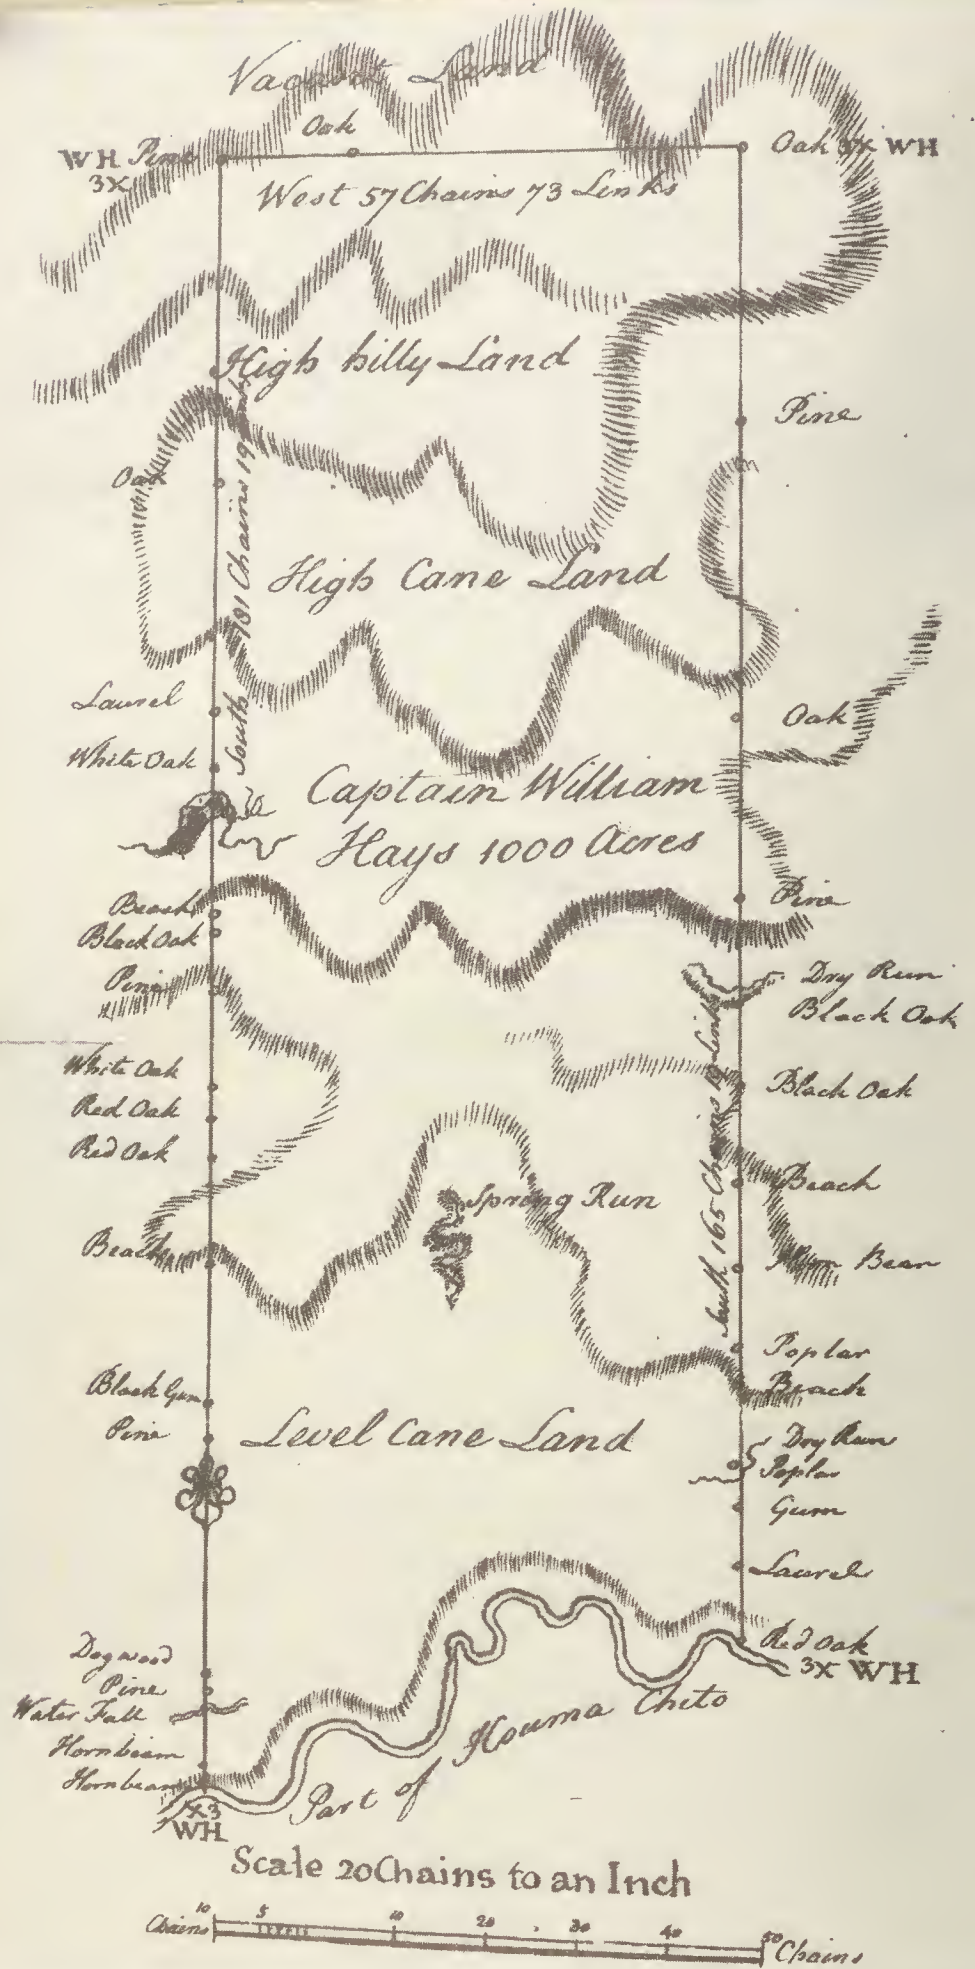 Vacant Land
Oak
WH Pine
3X
Oak 3X WH
West 57 Chains 73 Links
High hilly Land
Pine
Oak
South 181 Chains 19 Links
High Cane Land
Laurel
Oak
White Oak
Captain William
Hays 1000 Acres
Beach
Pine
Black Oak
Pine
Dry Run
Black Oak
White Oak
Black Oak
Red Oak
Red Oak
Beach
Spring Run
South 165 Chains 19 Links
Beach
Beam
Poplar
Beach
Black Gum
Pine
Level Cane Land
Dry Run
Poplar
Gum
Laurel
Red Oak
3X WH
Dogwood
Pine
Water Fall
Hornbeam
Hornbeam
X3
WH
Part of Houma Chito
Scale 20 Chains to an Inch
10 5 10 20 30 40 50
Chains Chains